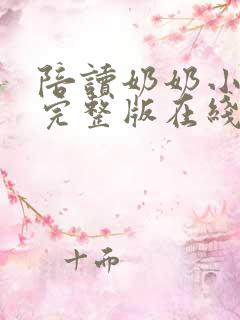 陪讀奶奶小
完整版在綫
十而